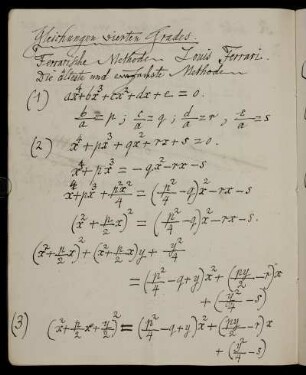 Gleichungen vierten Grades.
Ferrarische Methode. Louis Ferrari.
Die älteste und einfachste Methode
(1) ax⁴+bx³+cx²+dx+e = 0.
b/a = p ; c/a = q ; d/a = r , e/a = s
(2) x⁴+px³+qx²+rx+s = 0
x⁴+px³ = -qx²-rx-s
x⁴+px³+p²x²/4 = (p²/4-q)x²-rx-s
(x²+p/2 x)² = (p²/4-q)x²-rx-s.
(x²+p/2 x)²+(x²+p/2 x)y+y²/4
= (p²/4-q+y)x²+(py/2-r)x
+(y²/4-s)
(3) (x²+p/2 x+y/2)² = (p²/4-q+y)x²+(py/2-r)x
+(y²/4-s)